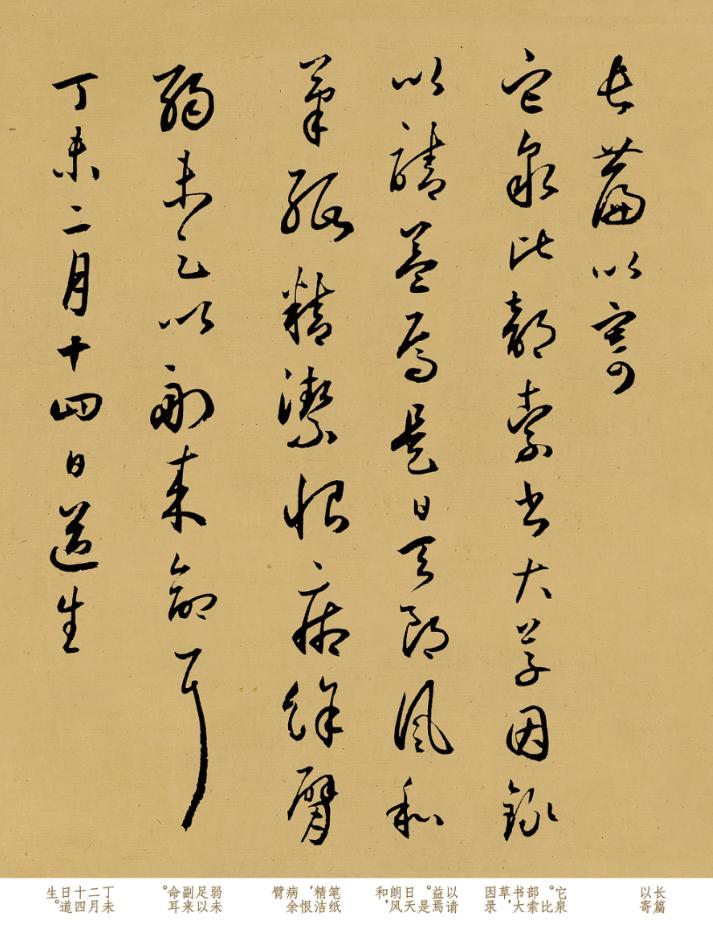 長篇以寄
它泉比部索书大草因錄
以請益焉是日天朗風和
筆紙精潔恨病餘臂
弱未足以副来命耳
丁未二月十四日道生
长篇以寄
它泉。比部索书大草，因录
以请益焉。是日天朗风和，
笔纸精洁，恨病余臂
弱未足以副来命耳。
丁未二月十四日道生。